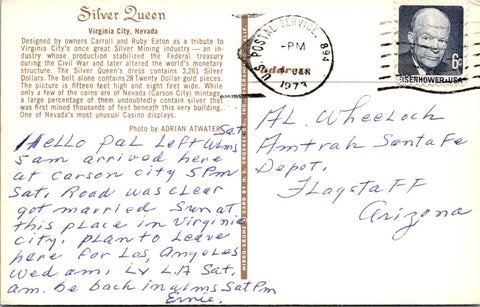 Silver Queen
Virginia City, Nevada
Designed by owners Carroll and Ruby Eaton as a tribute to
Virginia City's once great Silver Mining industry — an
industry whose production stabilized the Federal treasury
during the Civil War and later altered the world's monetary
structure. The Silver Queen's dress contains 3,261 Silver
Dollars. The belt alone contains 28 Twenty Dollar gold pieces.
The picture is fifteen feet high and eight feet wide. While
only a few of the coins are of Nevada (Carson City) mintage
a large percentage of them undoubtedly contain silver that
was first mined thousands of feet beneath this very building.
One of Nevada's most unusual Casino
Photo by ADRIAN ATWATER
Hello Pal Left Wlms Sat
5am arrived here
at Carson city 5PM
Sat, Road was clear
got married Sun at
this place in Virginia
City. plan to Leave
here for Los, Angeles
Wed am, Lv L.A Sat,
am. be back in wlms Sat Pm
Ernie.
U.S. POSTAL SERVICE 894
PM
JAN
1973
6¢
EISENHOWER·USA
AL Wheelock
Amtrak Santa Fe
Depot,
Flagstaff
Arizona